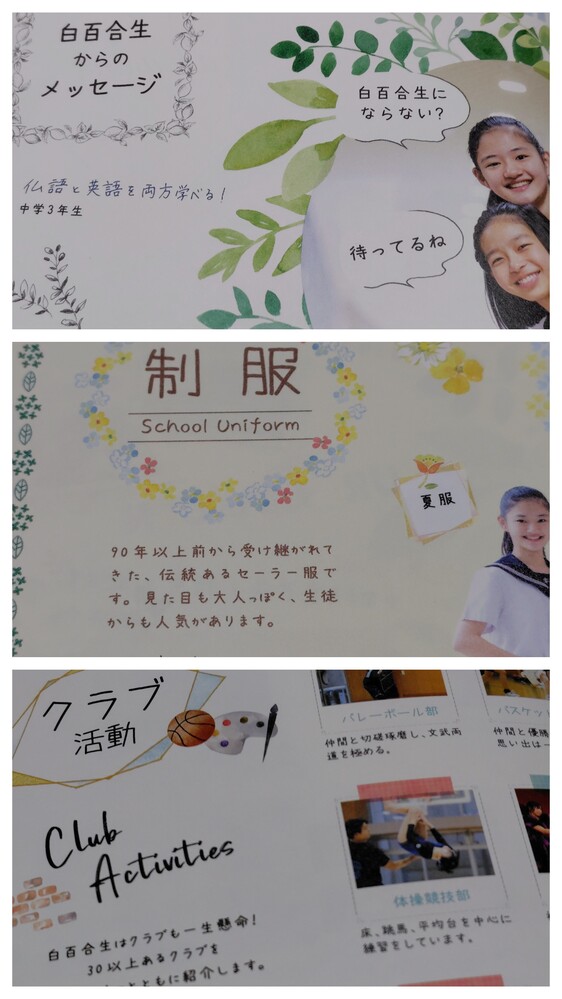 白百合生
からの
メッセージ
仏語と英語を両方学べる！
中学3年生
白百合生に
ならない？
待ってるね
制服
School Uniform
90年以上前から受け継がれて
きた、伝統あるセーラー服で
す。見た目も大人っぽく、生徒
からも人気があります。
夏服
クラブ
活動
Club
Activities
白百合生はクラブも一生懸命！
30以上あるクラブを
とともに紹介します。
バレーボール部
仲間と切磋琢磨し、文武両
道を極める。
バスケッ
仲間と優勝
思い出は一
体操競技部
床、跳馬、平均台を中心に
練習をしています。